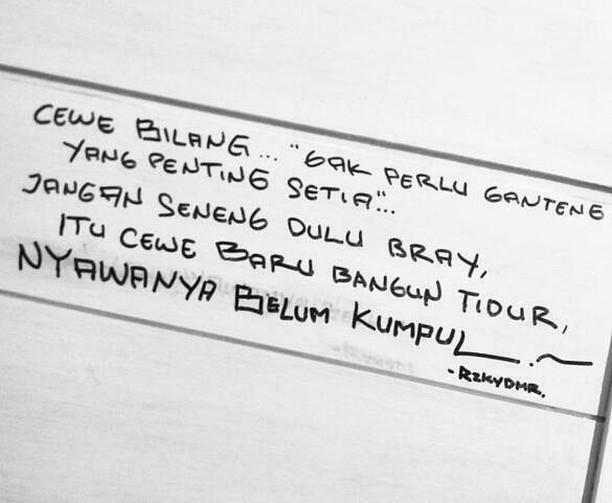 CEWE BILANG... "GAK PERLU GANTENG
YANG PENTING SETIA"...
JANGAN SENENG DULU BRAY,
ITU CEWE BARU BANGUN TIDUR,
NYAWANYA BELUM KUMPUL
-RZKYDMR.